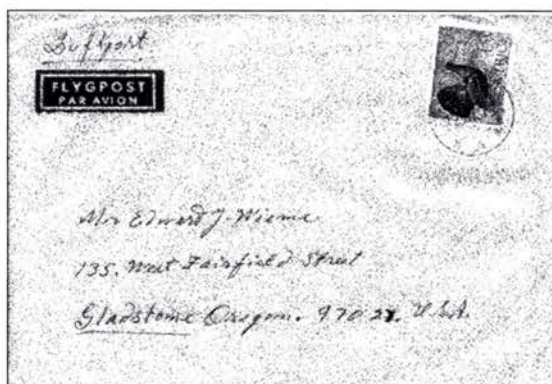 Luftpost
FLYGPOST
PAR AVION
Mr Edward J. Wieme
135. West Fairfield Street
Gladstone Oregon. 97027. U.S.A.